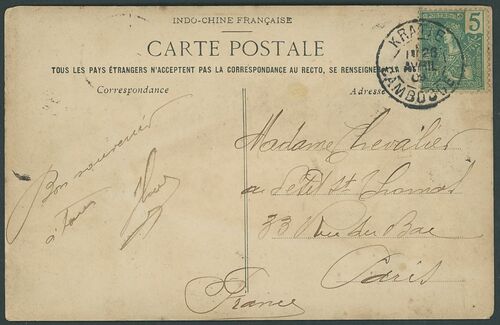 INDO-CHINE FRANÇAISE
CARTE POSTALE
TOUS LES PAYS ÉTRANGERS N'ACCEPTENT PAS LA CORRESPONDANCE AU RECTO, SE RENSEIGNER
Correspondance
Adresse
5
KRATIÉ
26
AVRIL
CAMBODGE
Bon souvenir
à
Madame Chevalier
au Petit St Thomas
33 Rue du Bac
Paris
France